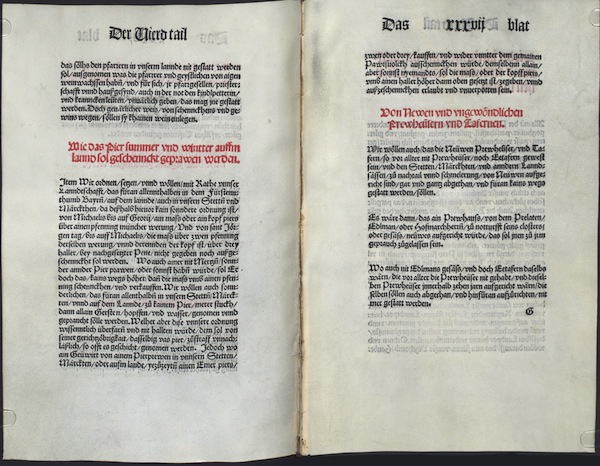 Der Vierd tail
das söllhs den pfarrern in vnserm lannde nit gestatt werden
sol/ausgenomen was die pfarrer vnd geystlichen von aigen
weinwachssen habñ/vnd für sich/ir pfarrgesellen/priester-
schafft vnnd haußgesynd/auch in der not den kindlpetterin/
vnd kranncken leuten/vnuärlich geben/das mag jne gestatt
werden. Doch geuärlicher weis/von schennckhens vnd ge-
wins wegen/sollen sy khainen wein einlegen.
Wie das Pier summer vnd winter auffm
lannd sol geschennckt vnd geprawen werden.
Item Wir ordnen/setzen/vnnd wöllen/mit Rathe vnnser
Lanndschafft/das füran allennthalben in dem Fürstenn-
thumb Bayrn/auf dem lannde/auch in vnsern Stettñ vnd
Märckthen/da deßhalb hieuor kain sonndere ordnung ist/
von Michaelis bis auf Georij/ain mass oder ain kopf piers
über ainen pfenning müncher werung/Vnd von sant Jör-
gen tag/bis auff Michaelis/die mass über zwen pfenning
derselben werung/vnnd derenden der kopf ist/über drey
haller/bey nachgesetzter Pene/nicht gegeben noch außge-
schennckht sol werden. Wo auch ainer nit Mertzñ/sonn-
der annder Pier prawen/oder sonnst habñ würde/sol Er
doch das/kains wegs höher/dañ die mass vmb ainen pfen-
ning schenncken/vnd verkauffen. Wir wöllen auch sonn-
derlichen/das füran allenthalbñ in vnsern Stettñ/Märck-
ten/vnnd auf dem Lannde/zu kainem Pier/merer stuckh/
dann allain Gersten/hopffen/vnd wasser/genomen vnnd
gepraucht sölle werden. Welher aber dise vnnsere ordnung
wissenntlich überfarñ vnd nit hallten würde/dem sol von
seiner gerichtzöbrigkait/dasselbig vas pier/zůstraff vnnach-
läßlich/so offt es geschicht/genomen werden. Jedoch wo
ain Geuwirt von ainem Pierprewen in vnnsern Stetten/
Märckten/oder aufm lande/yezůzeytñ ainen Emer piers/
Das xxxvij blat
zwen oder drey/kauffen/vnd wider vnnter den gemainen
Pawrsuolckh ausschenncken würde/demselben allain/
aber sonnst nyemandts/sol die mass/oder der kopff piers/
vmb ainen haller höher dann oben gesetzt ist/zegeben/vnnd
außzeschenncken erlaubt vnd vnuerpotten sein.
Von Newen vnd vngewöndlichen
Prewheüsern vnd Tafernen.
Wir wöllen auch/das die Neüwen Prewheüser/vnd Ta-
fern/so vor allter mit Prewheüser/noch Eetafern gewest
sein/vnd den Stetten/Märckten/anndern Lannd-
sässen/zů nachtail vnnd schmelerung/von Neüwen aufge-
richt sind/gar vnd gantz abgethan/vnd füran kains wegs
gestatt werden/sollen.
Es wäre dann/das ain Prewhauß/von dem Prelaten/
Edlman/oder Hofmarchherrn/zů notturfft seins closters/
oder gesäß/neüwes aufgericht würde/das sol jnn zů jrm
geprauch zůgelassen sein.
Wo auch nit Edlmans gesäss/vnd doch Eetafern daselbs
wärn/die vor alter die Prewheüser nit gehabt/vnd dieselben
Prewheüser jnnerhalb zehen jarn aufgericht wärn/die-
selben söllen auch abgethan/vnd hinfüran aufzürichten/nit
mer gestatt werden.
G